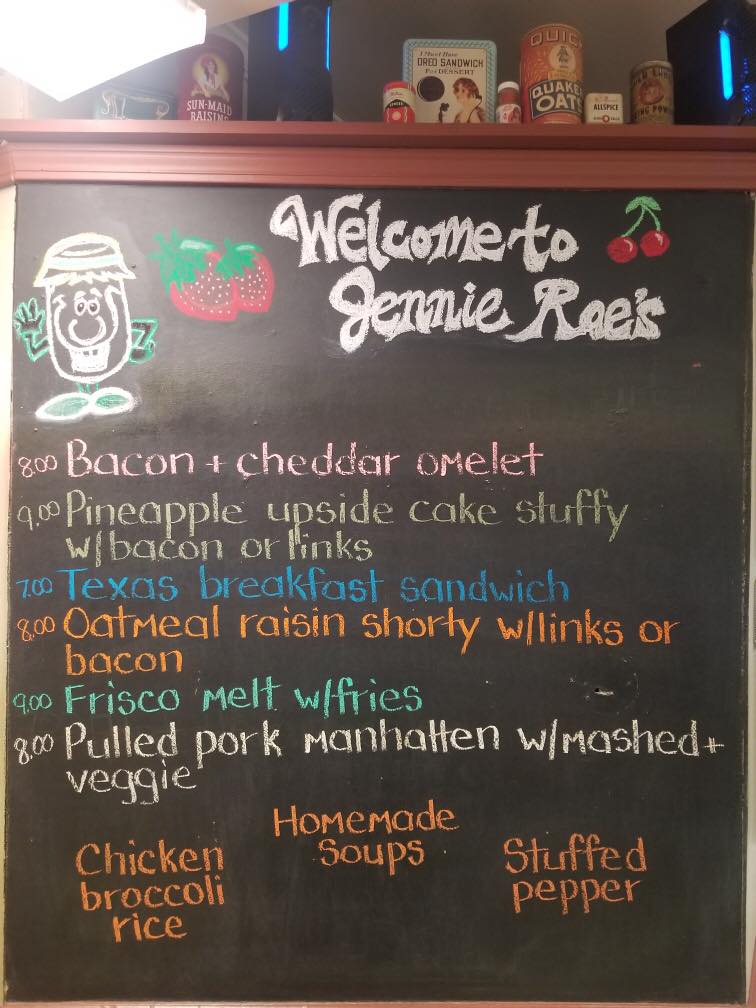 SUN-MAID
RAISINS
I Must Have
OREO SANDWICH
For DESSERT
QUICK
QUAKER
OATS
ALLSPICE
Welcome to
Jennie Rae's
8.00 Bacon + cheddar omelet
9.00 Pineapple upside cake stuffy
w/bacon or links
7.00 Texas breakfast sandwich
8.00 Oatmeal raisin shorty w/links or
bacon
9.00 Frisco melt w/fries
8.00 Pulled pork manhatten w/mashed +
veggie
Homemade
Soups
Chicken
broccoli
rice
Stuffed
pepper